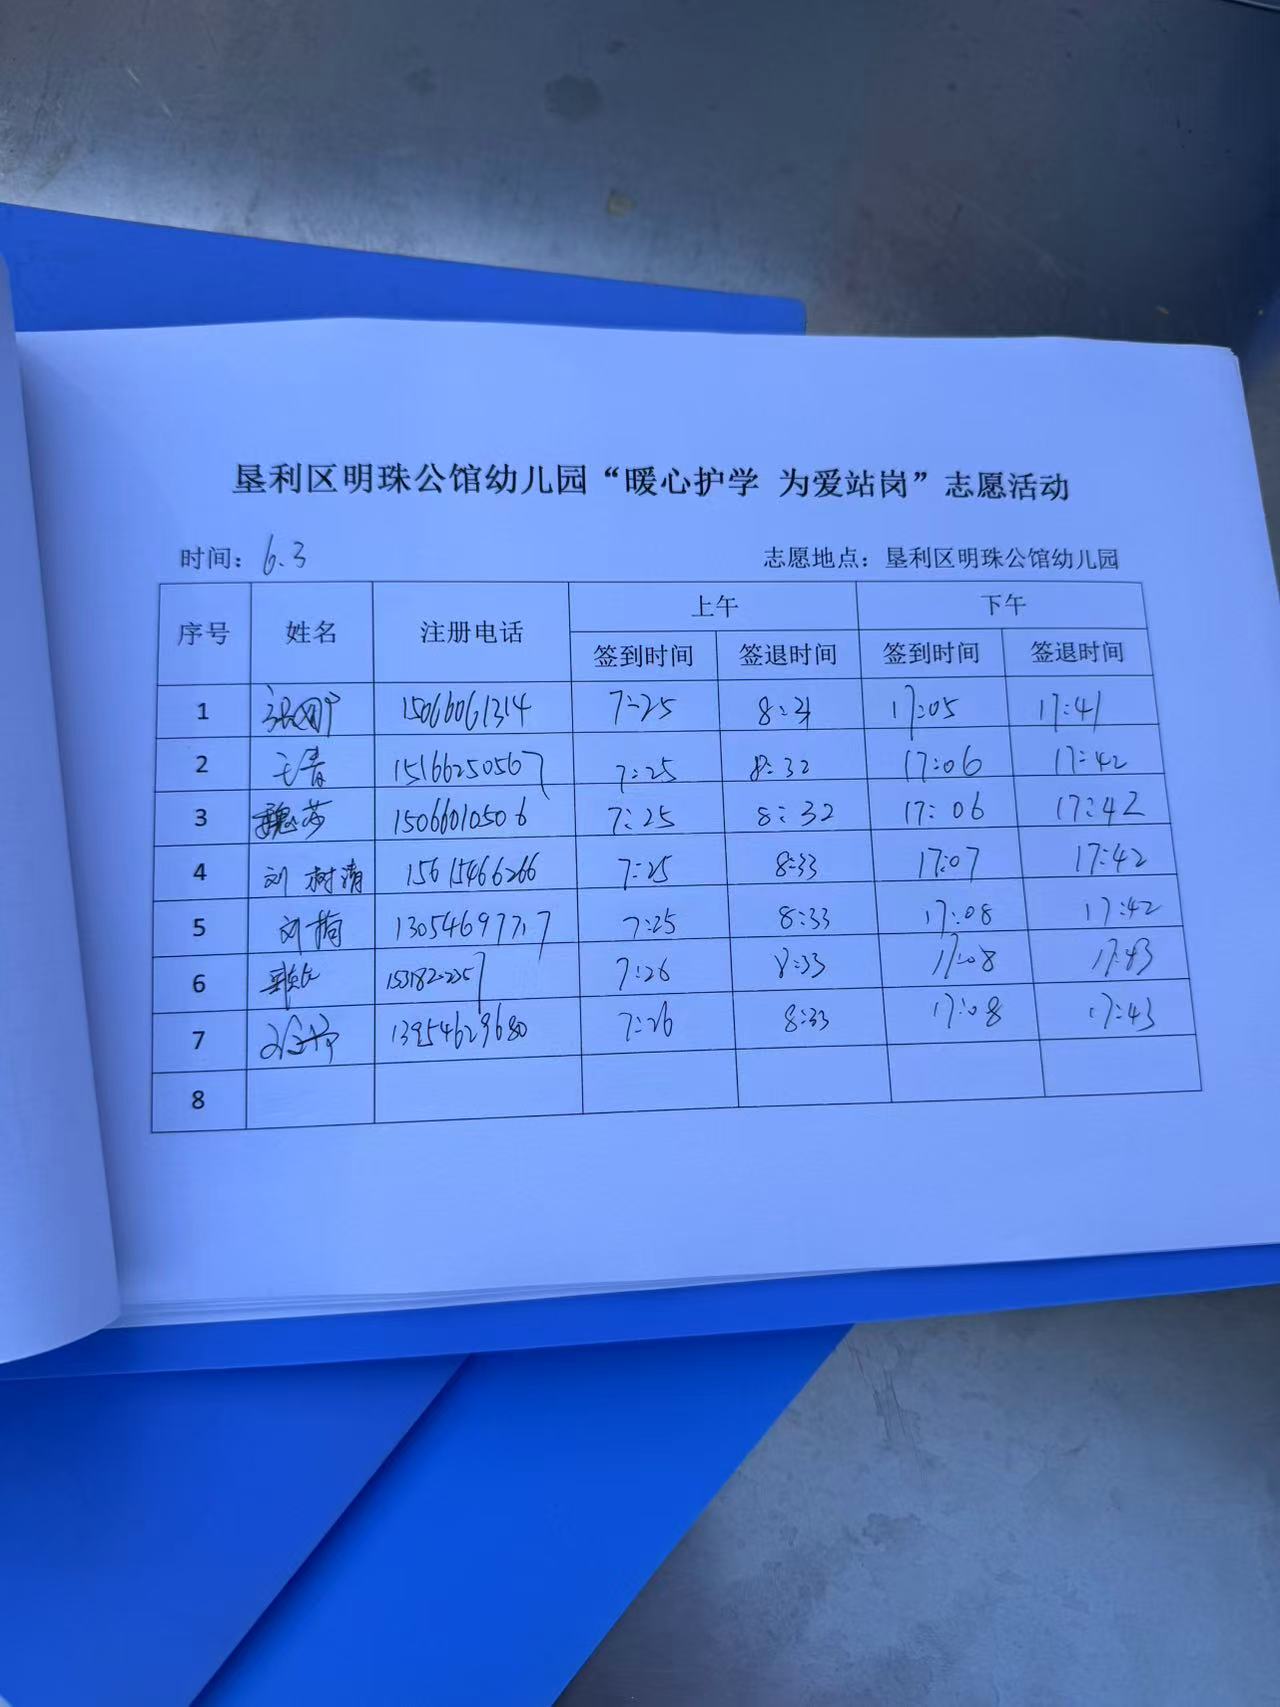 垦利区明珠公馆幼儿园“暖心护学 为爱站岗”志愿活动
时间：6.3 志愿地点：垦利区明珠公馆幼儿园
序号 姓名 注册电话 上午 下午
签到时间 签退时间 签到时间 签退时间
1 15066061314 7:25 17:05 17:41
2 王青 15166250567 7:25 8:32 17:06 17:42
3 魏莎 15066010506 7:25 8:32 17:06 17:42
4 刘树清 15615466266 7:25 8:33 17:07 17:42
5 刘梅 13054697717 7:25 8:33 17:08 17:42
6 7:26 8:33 17:08 17:43
7 13954629680 7:26 8:33 17:08 17:43
8